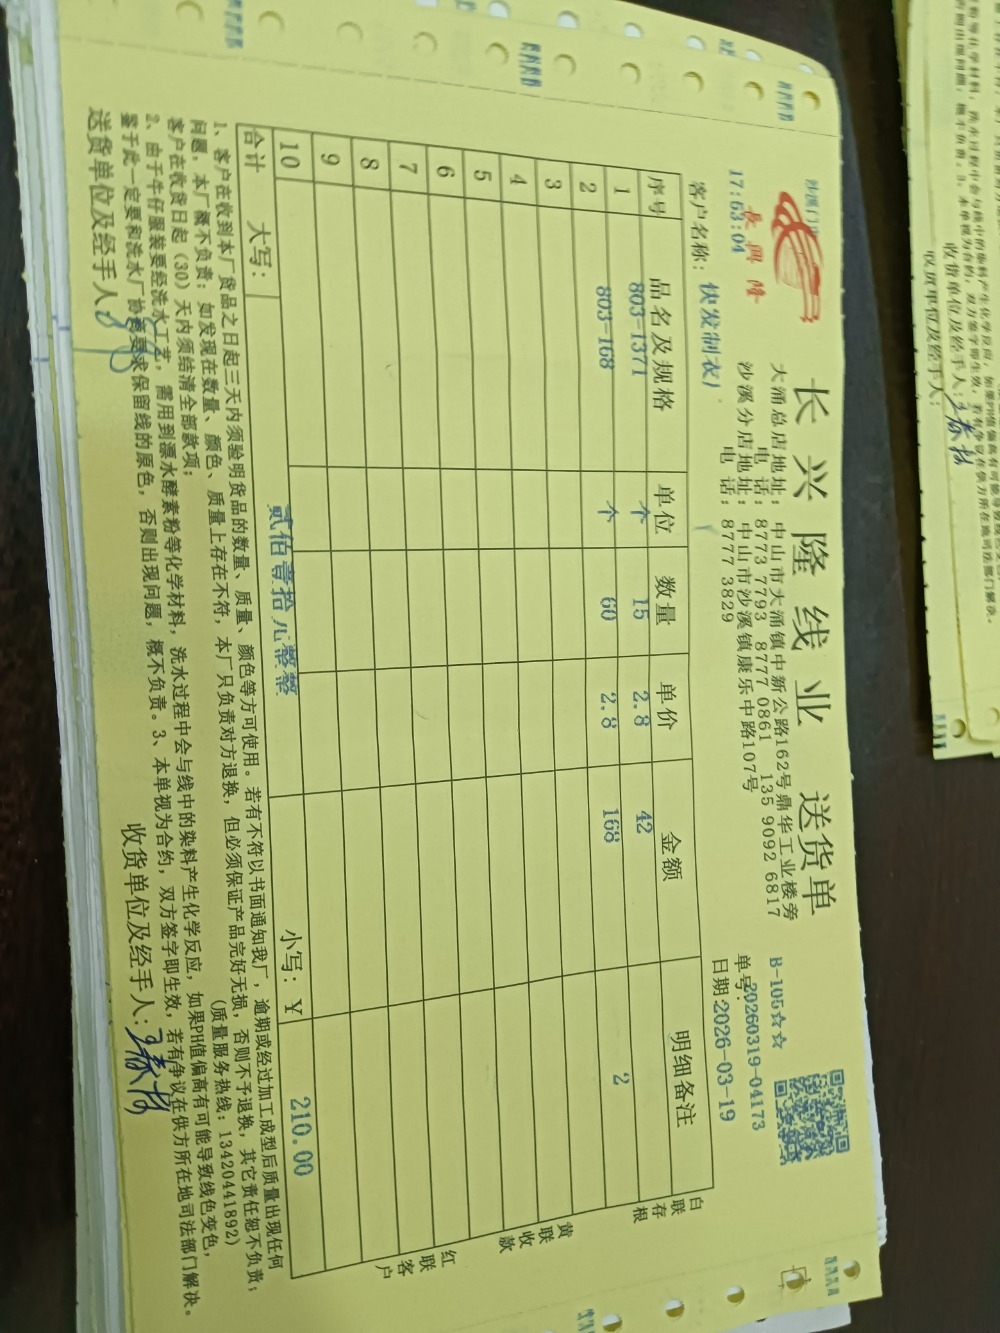 长兴隆线业 送货单
沙溪门
長興隆
17:53:04
大涌总店地址：中山市大涌镇中新公路162号鼎华工业楼旁
电 话：8773 7793 8777 0861 135 9092 6817
沙溪分店地址：中山市沙溪镇康乐中路107号
电 话：8777 3829
B-105☆☆
单号：20260319-04173
日期：2026-03-19
客户名称：快发制衣厂
序号 品名及规格 单位 数量 单价 金额 明细备注
1 803-1371 个 15 2.8 42
2 803-168 个 60 2.8 168 2
3
4
5
6
7
8
9
10
合计 大写：贰佰壹拾元整整 小写：Y 210.00
白联存根
黄联收款
红联客户
1、客户在收到本厂货品之日起三天内须验明货品的数量、质量、颜色等方可使用。若有不符以书面通知我厂，逾期或经过加工成型后质量出现任何
问题，本厂概不负责；如发现在数量、颜色、质量上存在不符，本厂只负责对方退换，但必须保证产品完好无损，否则不予退换，其它责任恕不负责；
客户在收货日起（30）天内须结清全部款项； （质量服务热线：13420441892）
2、由于牛仔服装要经洗水工艺，需用到漂水酵素粉等化学材料，洗水过程中会与线中的染料产生化学反应，如果PH值偏高有可能导致线色变色，
鉴于此一定要和洗水厂协商要求保留线的原色，否则出现问题，概不负责。3、本单视为合约，双方签字即生效，若有争议在供方所在地司法部门解决。
送货单位及经手人： 收货单位及经手人：
收货单位及经手人：
收货单位及经手人：